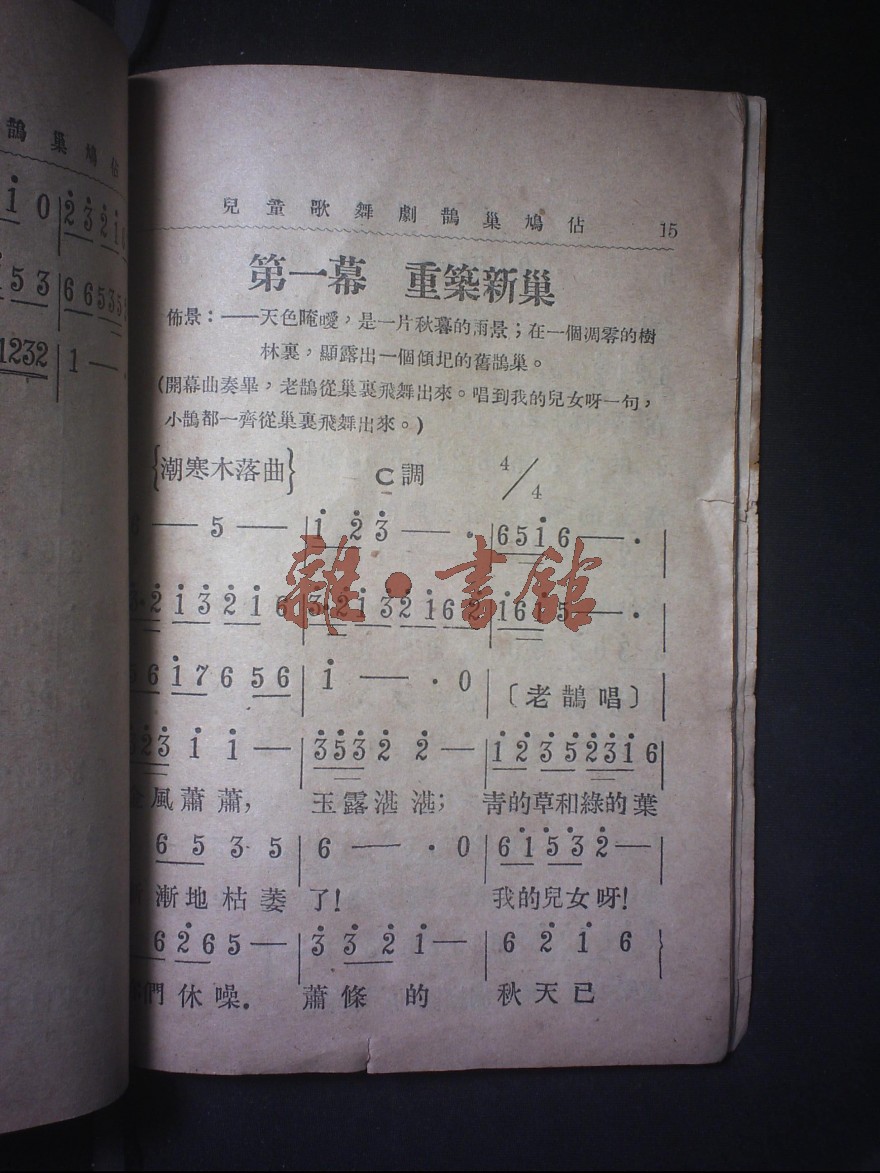 鵲巢鳩佔
1 0 | 2 3 2 1
5 3 | 6 6 5 3 5
1232 | 1 —
兒童歌舞劇鵲巢鳩佔 15
第一幕 重築新巢
佈景：——天色晻曖，是一片秋暮的雨景；在一個凋零的樹
林裏，顯露出一個傾圯的舊鵲巢。
(開幕曲奏畢，老鵲從巢裏飛舞出來。唱到我的兒女呀一句，
小鵲都一齊從巢裏飛舞出來。)
{潮寒木落曲} C調 4/4
— 5 — | 1 2 3 — · | 6 5 1 6 — · |
3·2 1 3 2 1 6 | 3·2 1 3 2 1 6 2 | 1 6 1 5 — · |
5 6 1 7 6 5 6 | 1 — · 0 | 〔老鵲唱〕
2 3 1 1 — | 3 5 3 2 2 — | 1 2 3 5 2 3 1 6
風蕭蕭， 玉露湛湛； 青的草和綠的葉
6 5 3 5 | 6 — · 0 | 6 1 5 3 2 — |
漸地枯萎了！ 我的兒女呀！
6 2 6 5 — | 3 3 2 1 — | 6 2 1 6
們休噪． 蕭條的 秋天已
雜·書館